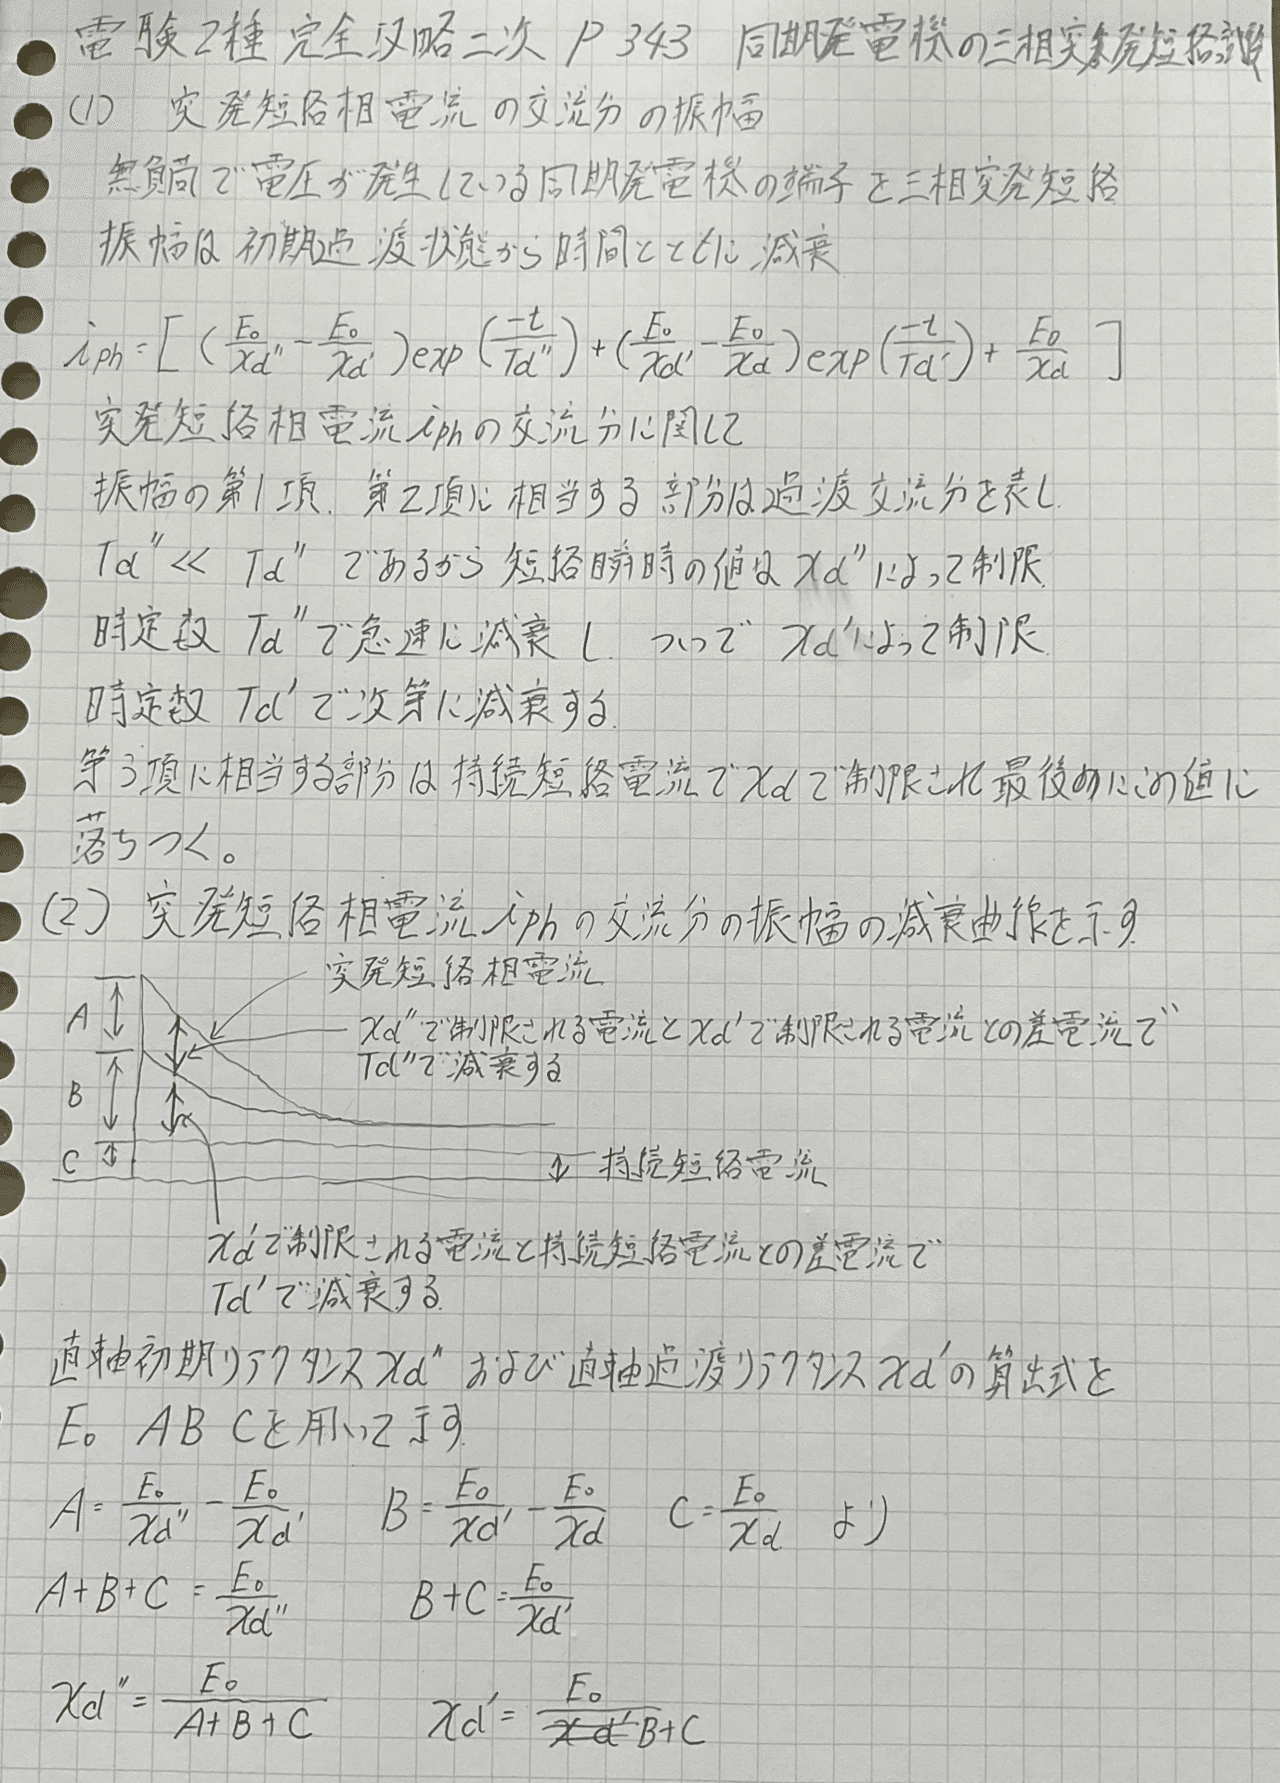 電験2種 完全攻略二次 P343 同期発電機の三相突発短絡試験
(1) 突発短絡相電流の交流分の振幅
無負荷で電圧が発生している同期発電機の端子を三相突発短絡
振幅は初期過渡状態から時間とともに減衰
iph=[(E₀/xd''-E₀/xd')exp(-t/Td'')+(E₀/xd'-E₀/xd)exp(-t/Td')+E₀/xd]
突発短絡相電流iphの交流分に関して
振幅の第1項.第2項に相当する部分は過渡交流分を表し.
Td''≪Td''であるから短絡瞬時の値はxd''によって制限.
時定数Td''で急速に減衰し.ついでxd'によって制限.
時定数Td'で次第に減衰する.
第3項に相当する部分は持続短絡電流でxdで制限され最後めにこの値に
落ちつく。
(2) 突発短絡相電流iphの交流分の振幅の減衰曲線を示す.
突発短絡相電流
A
xd''で制限される電流とxd'で制限される電流との差電流で
Td''で減衰する
B
C
持続短絡電流
xd'で制限される電流と持続短絡電流との差電流で
Td'で減衰する.
直軸初期リアクタンスxd''および直軸過渡リアクタンスxd'の算出式を
E₀ A B Cを用いて示す.
A=E₀/xd''-E₀/xd' B=E₀/xd'-E₀/xd C=E₀/xd より
A+B+C=E₀/xd'' B+C=E₀/xd'
xd''=E₀/(A+B+C) xd'=E₀/(B+C)